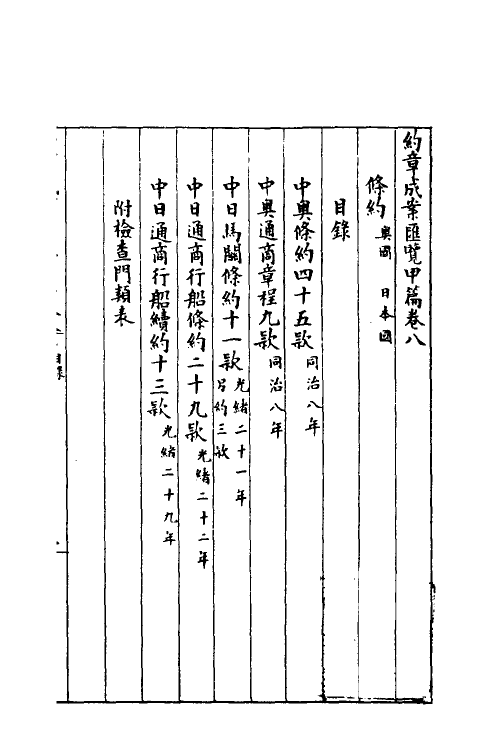 約章成案匯覽甲篇卷八
條約 奧國 日本國
目錄
中奧條約四十五款 同治八年
中奧通商章程九款 同治八年
中日馬關條約十一款 光緒二十一年 另約三款
中日通商行船條約二十九款 光緒二十二年
中日通商行船續約十三款 光緒二十九年
附檢查門類表
目錄